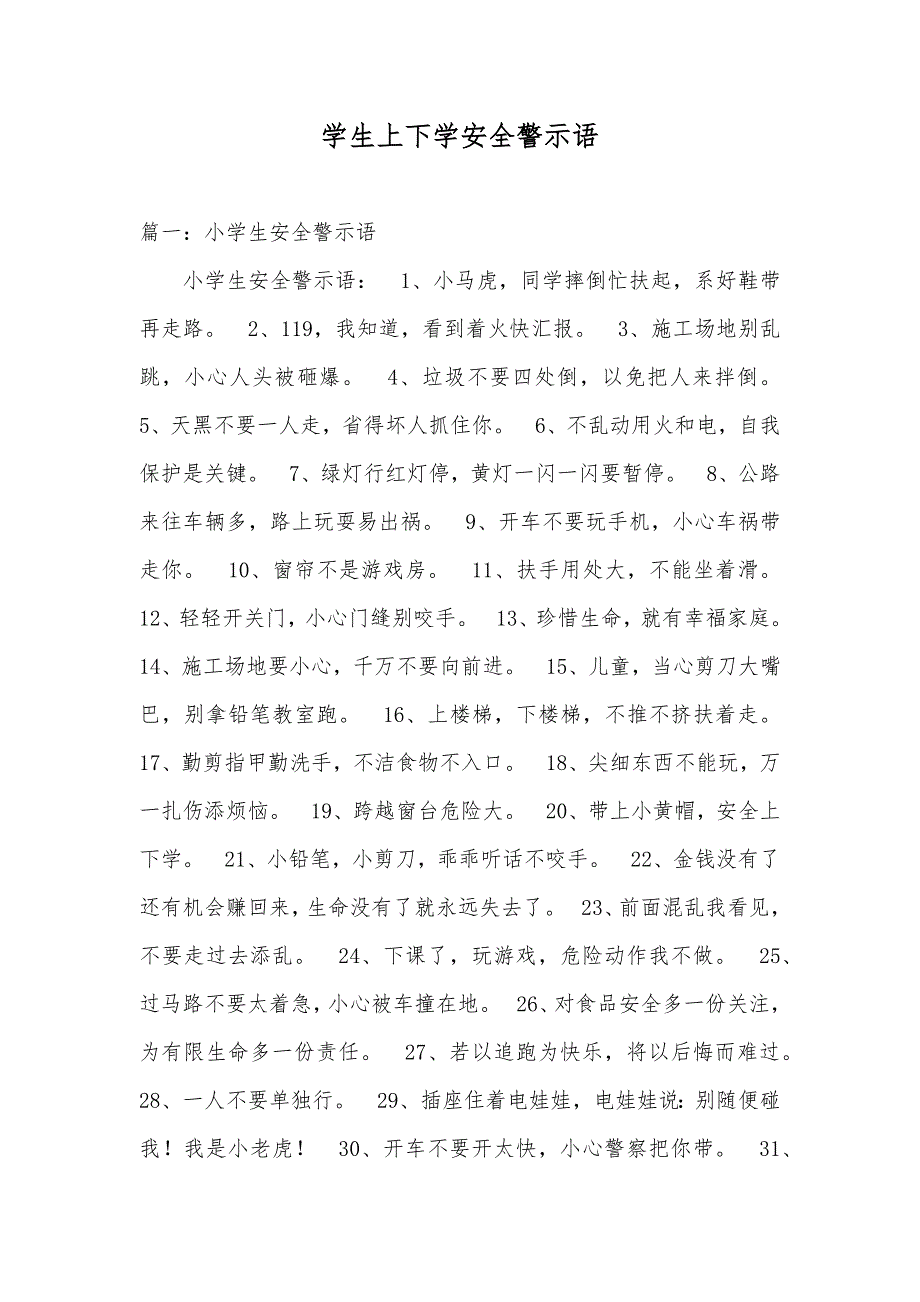 学生上下学安全警示语
篇一：小学生安全警示语
小学生安全警示语：　1、小马虎，同学摔倒忙扶起，系好鞋带
再走路。　2、119，我知道，看到着火快汇报。　3、施工场地别乱
跳，小心人头被砸爆。　4、垃圾不要四处倒，以免把人来拌倒。
5、天黑不要一人走，省得坏人抓住你。　6、不乱动用火和电，自我
保护是关键。　7、绿灯行红灯停，黄灯一闪一闪要暂停。　8、公路
来往车辆多，路上玩耍易出祸。　9、开车不要玩手机，小心车祸带
走你。　10、窗帘不是游戏房。　11、扶手用处大，不能坐着滑。
12、轻轻开关门，小心门缝别咬手。　13、珍惜生命，就有幸福家庭。
14、施工场地要小心，千万不要向前进。　15、儿童，当心剪刀大嘴
巴，别拿铅笔教室跑。　16、上楼梯，下楼梯，不推不挤扶着走。
17、勤剪指甲勤洗手，不洁食物不入口。　18、尖细东西不能玩，万
一扎伤添烦恼。　19、跨越窗台危险大。　20、带上小黄帽，安全上
下学。　21、小铅笔，小剪刀，乖乖听话不咬手。　22、金钱没有了
还有机会赚回来，生命没有了就永远失去了。　23、前面混乱我看见，
不要走过去添乱。　24、下课了，玩游戏，危险动作我不做。　25、
过马路不要太着急，小心被车撞在地。　26、对食品安全多一份关注，
为有限生命多一份责任。　27、若以追跑为快乐，将以后悔而难过。
28、一人不要单独行。　29、插座住着电娃娃，电娃娃说：别随便碰
我！我是小老虎！　30、开车不要开太快，小心警察把你带。　31、